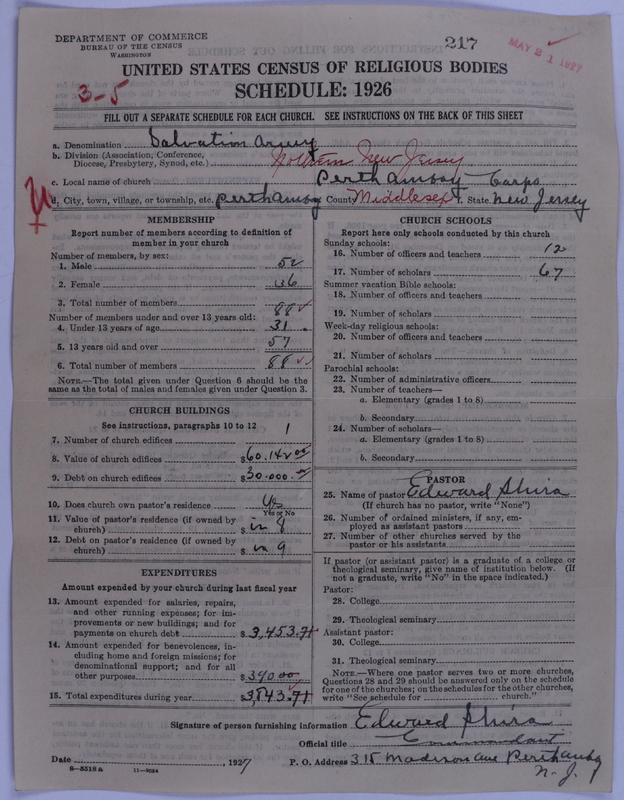 DEPARTMENT OF COMMERCE
BUREAU OF THE CENSUS
WASHINGTON
217
MAY 21 1927
UNITED STATES CENSUS OF RELIGIOUS BODIES
3-5
SCHEDULE: 1926
FILL OUT A SEPARATE SCHEDULE FOR EACH CHURCH. SEE INSTRUCTIONS ON THE BACK OF THIS SHEET
a. Denomination Salvation Army
b. Division (Association, Conference, Diocese, Presbytery, Synod, etc.) Northern New Jersey
c. Local name of church Perth Amboy Corps
d. City, town, village, or township, etc. Perth Amboy County Middlesex f. State New Jersey
MEMBERSHIP
Report number of members according to definition of
member in your church
Number of members, by sex:
1. Male 52
2. Female 36
3. Total number of members 88
Number of members under and over 13 years old:
4. Under 13 years of age 31
5. 13 years old and over 57
6. Total number of members 88
NOTE.—The total given under Question 6 should be the
same as the total of males and females given under Question 3.
CHURCH BUILDINGS
See instructions, paragraphs 10 to 12
7. Number of church edifices 1
8. Value of church edifices $60.142 00
9. Debt on church edifices $30.000.00
10. Does church own pastor's residence Yes
Yes or No
11. Value of pastor's residence (if owned by
church) $ in 8
12. Debt on pastor's residence (if owned by
church) $ in 9
EXPENDITURES
Amount expended by your church during last fiscal year
13. Amount expended for salaries, repairs,
and other running expenses; for im-
provements or new buildings; and for
payments on church debt $3,453.71
14. Amount expended for benevolences, in-
cluding home and foreign missions; for
denominational support; and for all
other purposes $390.00
15. Total expenditures during year $3,843.71
CHURCH SCHOOLS
Report here only schools conducted by this church
Sunday schools:
16. Number of officers and teachers 12
17. Number of scholars 67
Summer vacation Bible schools:
18. Number of officers and teachers
19. Number of scholars
Week-day religious schools:
20. Number of officers and teachers
21. Number of scholars
Parochial schools:
22. Number of administrative officers
23. Number of teachers—
a. Elementary (grades 1 to 8)
b. Secondary
24. Number of scholars—
a. Elementary (grades 1 to 8)
b. Secondary
PASTOR
25. Name of pastor Edward Shira
(If church has no pastor, write "None")
26. Number of ordained ministers, if any, em-
ployed as assistant pastors
27. Number of other churches served by the
pastor or his assistants
If pastor (or assistant pastor) is a graduate of a college or
theological seminary, give name of institution below. (If
not a graduate, write "No" in the space indicated.)
Pastor:
28. College
29. Theological seminary
Assistant pastor:
30. College
31. Theological seminary
NOTE.—Where one pastor serves two or more churches,
Questions 28 and 29 should be answered only on the schedule
for one of the churches; on the schedules for the other churches,
write "See schedule for church."
Signature of person furnishing information Edward Shira
Official title Commandant
Date , 1927 P. O. Address 315 Madison Ave Perth Amboy
N. J.
8—5518a 11—9024